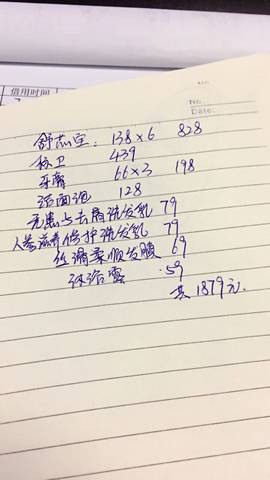 借用时间
No.
Date:
舒杰宝: 138×6 828
标卫 439
牙膏 66×3 198
洁面泡 128
无患子去屑洗发乳 79
人参滋养保护洗发乳 79
丝滑柔顺发膜 69
沐浴露 59
共1879元.